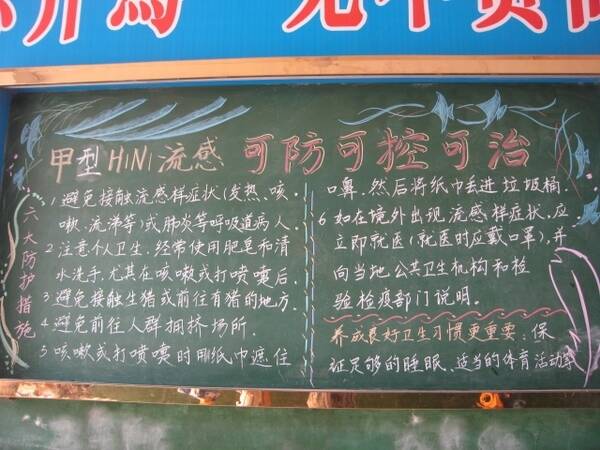 甲型H1N1流感 可防可控可治
六大防护措施
1 避免接触流感样症状(发热、咳
嗽、流涕等)或肺炎等呼吸道病人.
2 注意个人卫生.经常使用肥皂和清
水洗手,尤其在咳嗽或打喷嚏后.
3 避免接触生猪或前往有猪的地方.
4 避免前往人群拥挤场所.
5 咳嗽或打喷嚏时用纸巾遮住
口鼻.然后将纸巾丢进垃圾桶.
6 如在境外出现流感样症状,应
立即就医(就医时应戴口罩),并
向当地公共卫生机构和检
验检疫部门说明.
养成良好卫生习惯更重要:保
证足够的睡眠、适当的体育活动等